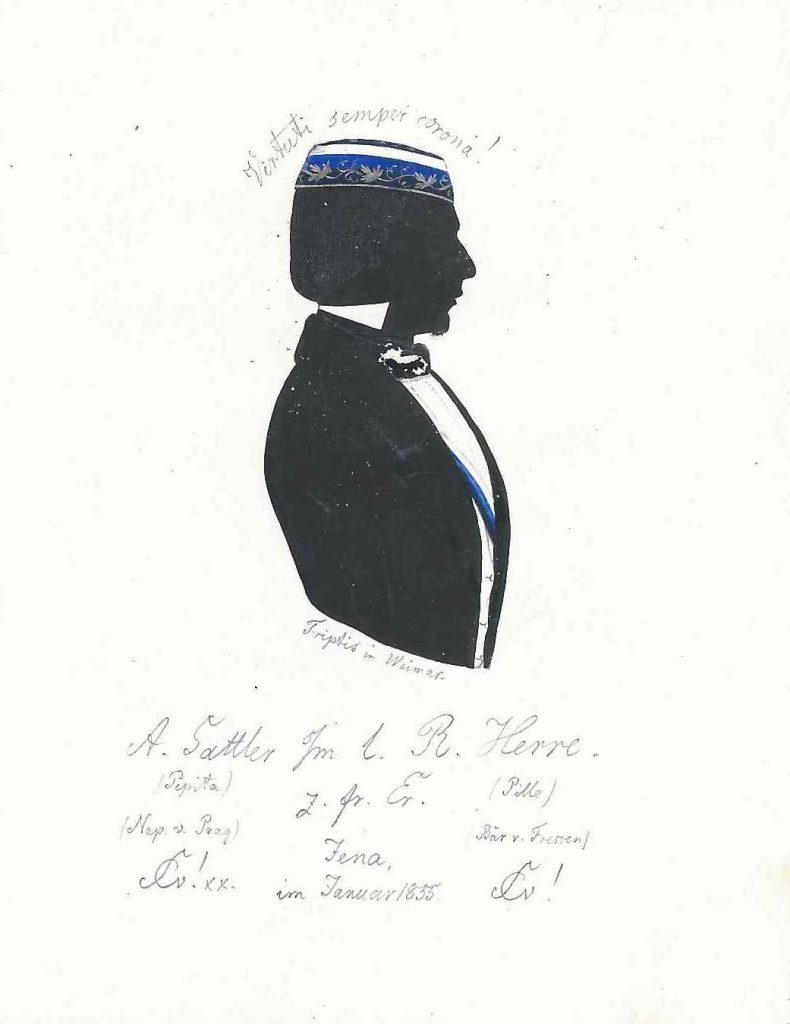 Virtuti semper corona!
Triptis in Weimar.
A. Sattler s/m l. R. Herre.
(Pepita) z. fr. Er. (Pille)
(Nep. v. Prag) (Bär v. Fressen)
Jena,
xx. im Januar 1855